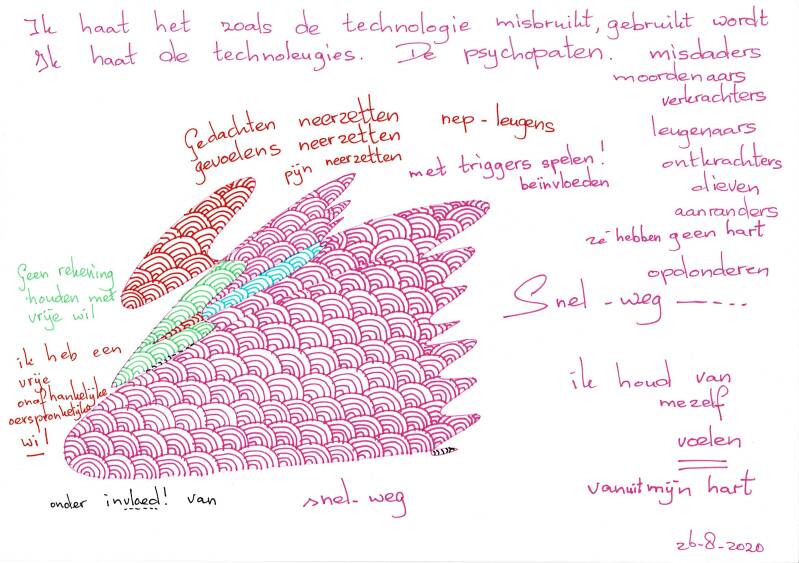 Ik haat het zoals de technologie misbruikt, gebruikt wordt
Ik haat de technoleugies. De psychopaten. misdaders
moordenaars
verkrachters
leugenaars
ontkrachters
dieven
aanranders
ze hebben geen hart
opdonderen
Gedachten neerzetten
gevoelens neerzetten
pijn neerzetten
nep-leugens
met triggers spelen!
beïnvloeden
Snel-weg
Geen rekening
houden met
vrije wil
ik heb een
vrije
onafhankelijke
oerspronkelijke
wil
ik houd van
mezelf
voelen
vanuit mijn hart
onder invloed! van snel-weg
26-8-2020